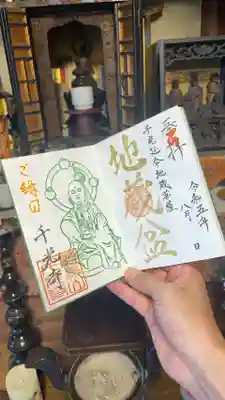 奉拝
千光延命地蔵菩薩
令和五年
八月 日
地蔵盆
ご縁日
千光寺